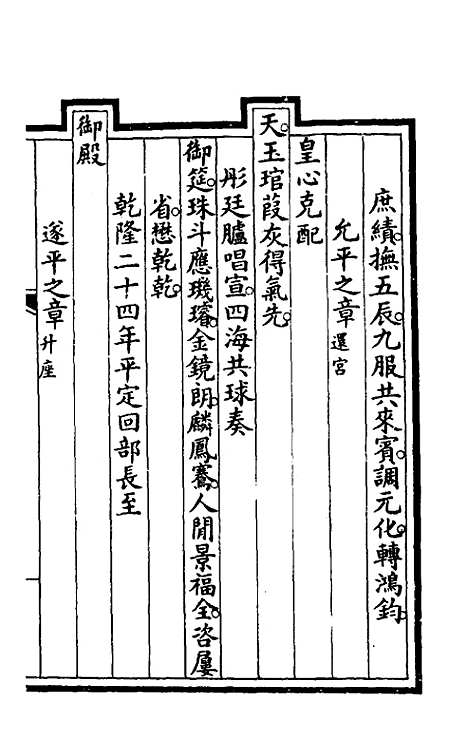 庶績。撫五辰。九服共來賓。調元化。轉鴻鈞。
允平之章還宮
皇心克配
天。玉琯葭灰得氣先。
彤廷臚唱宣。四海共球奏
御筵。珠斗應璣璿。金鏡朗。麟鳳騫。人閒景福全。咨屢
省。懋乾乾。
乾隆二十四年平定回部長至
御殿
遂平之章升座